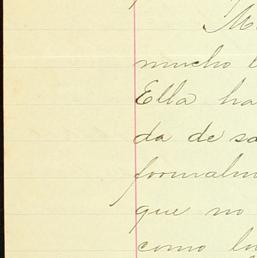 mucho l
Ella ha
da de sa
formalm
que no
como lo